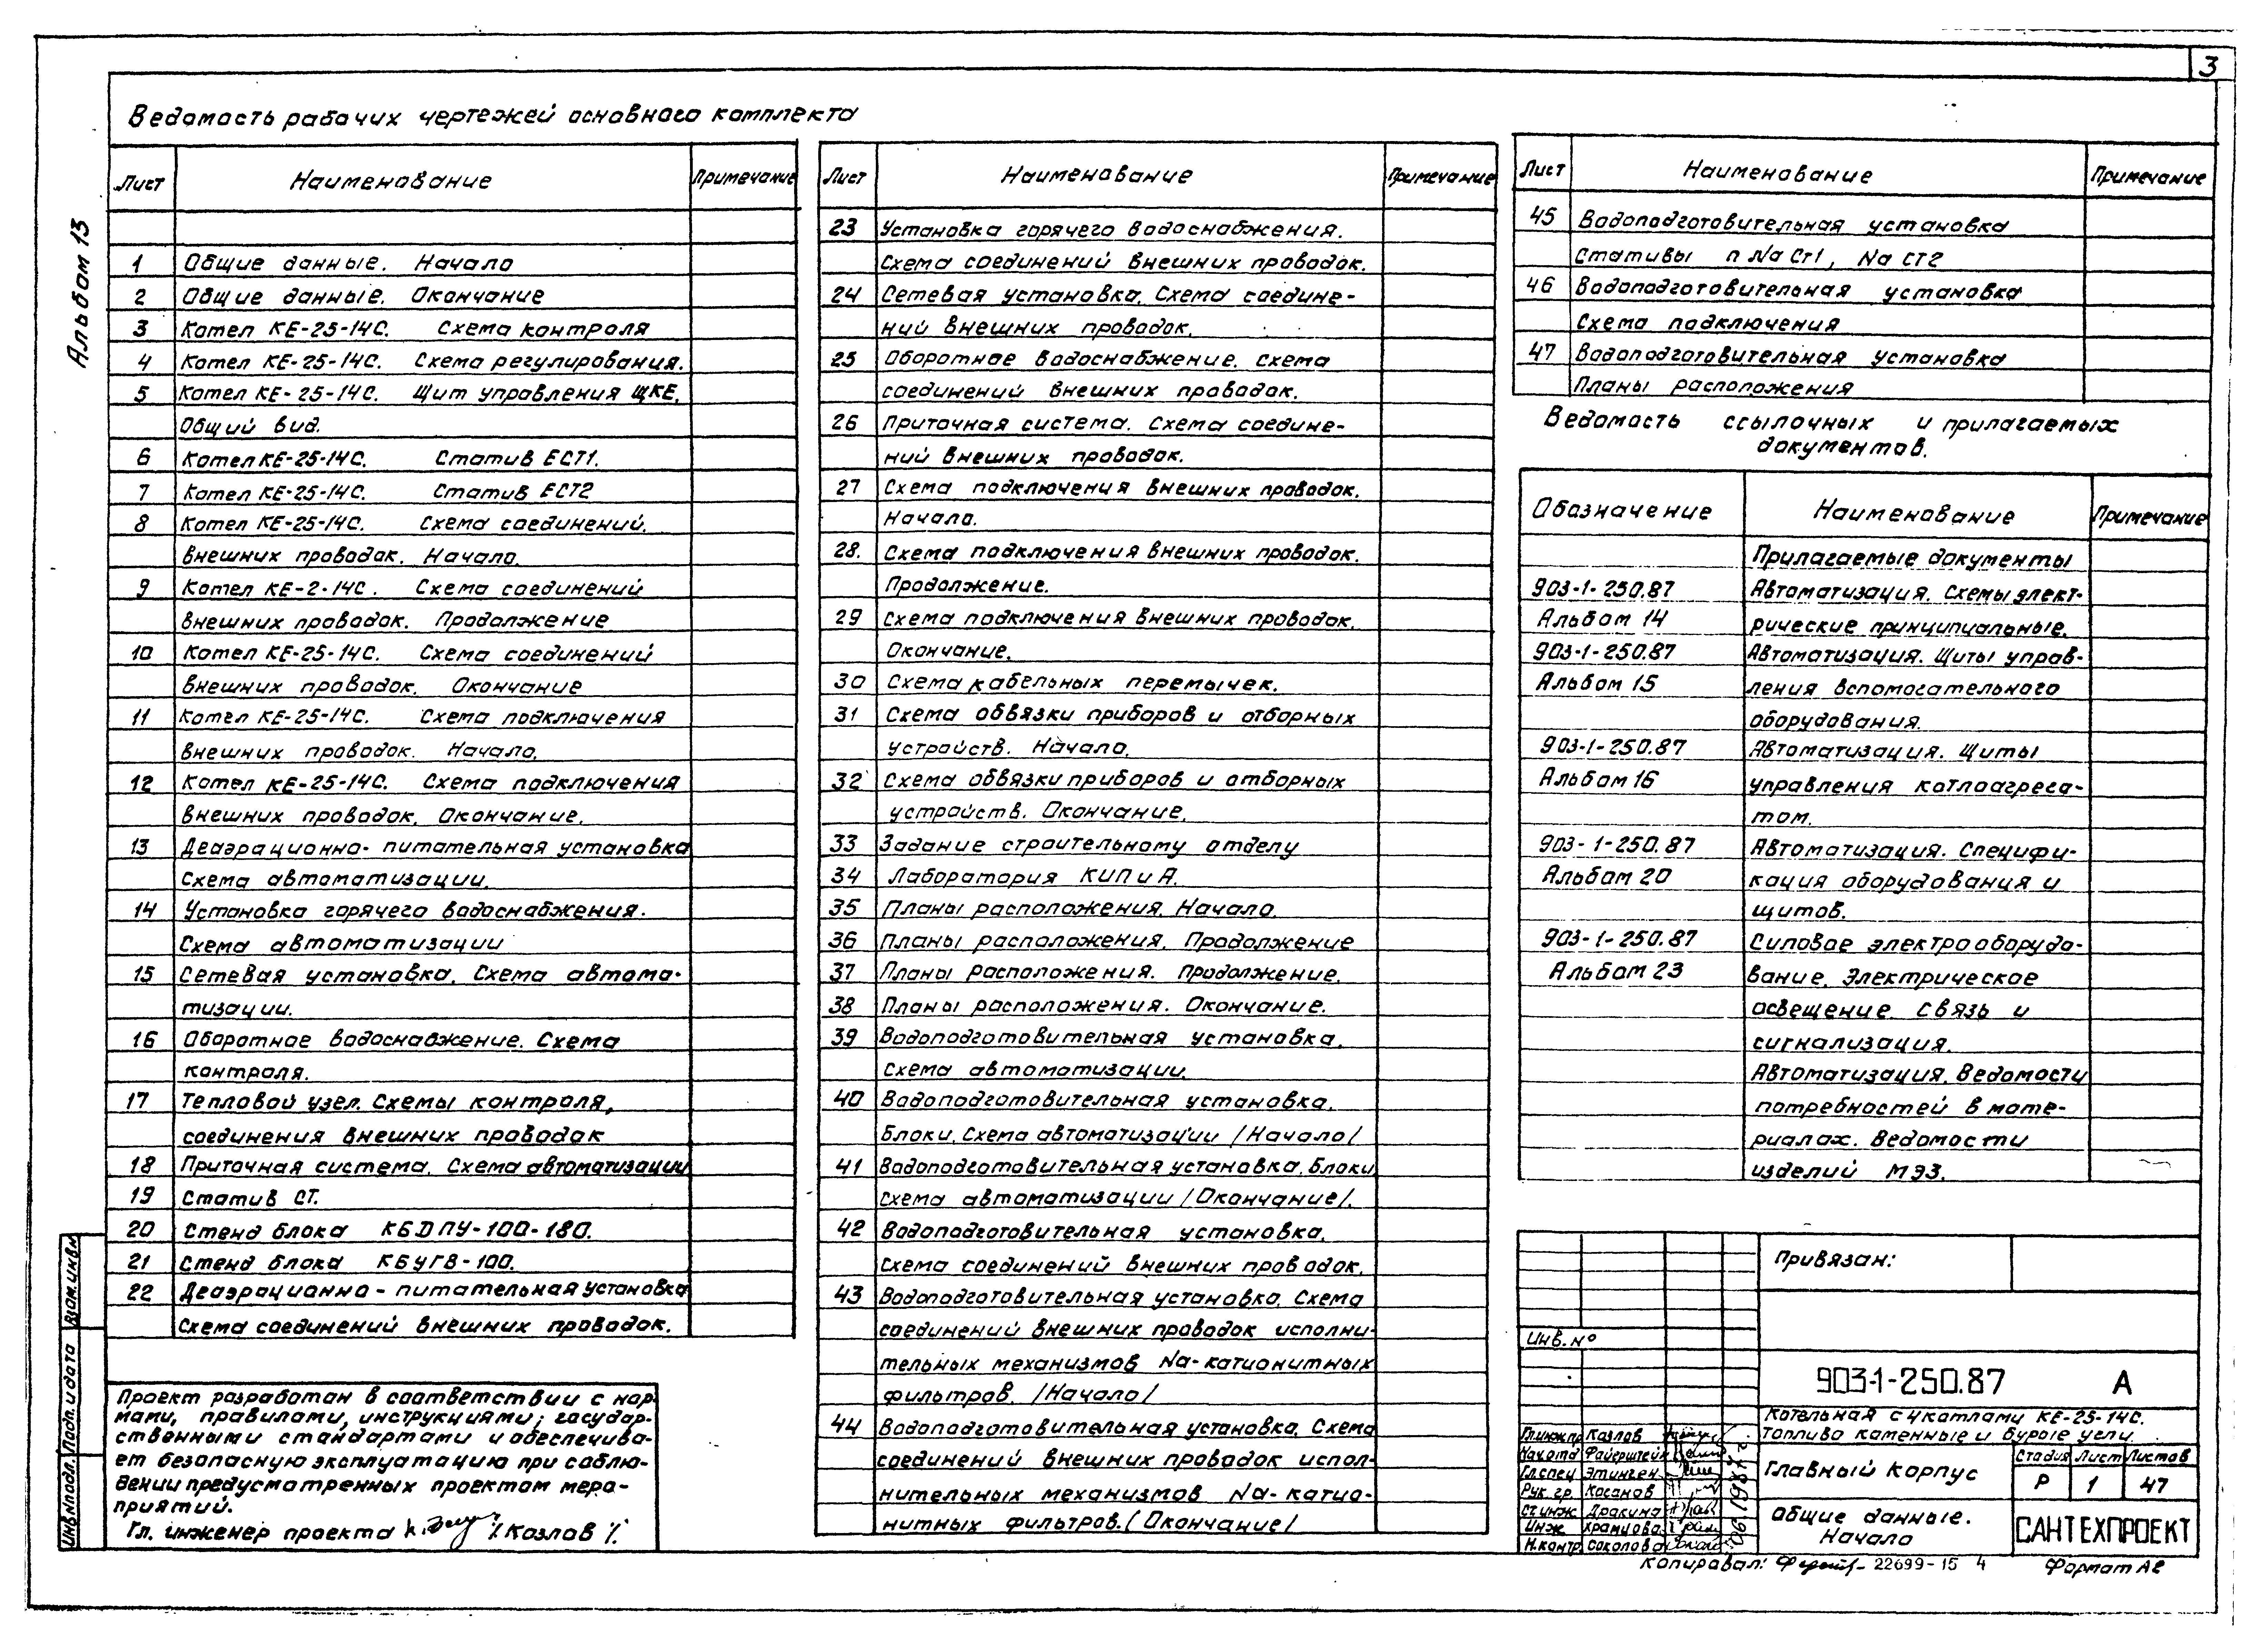 3
Альбом 13
Ведомость рабочих чертежей основного комплекта
Лист Наименование Примечание
1 Общие данные. Начало
2 Общие данные. Окончание
3 Котел КЕ-25-14С. Схема контроля
4 Котел КЕ-25-14С. Схема регулирования.
5 Котел КЕ-25-14С. Щит управления ЩКЕ.
Общий вид.
6 Котел КЕ-25-14С. Статив ЕСТ1.
7 Котел КЕ-25-14С. Статив ЕСТ2
8 Котел КЕ-25-14С. Схема соединений.
внешних проводок. Начало.
9 Котел КЕ-2-14С. Схема соединений
внешних проводок. Продолжение
10 Котел КЕ-25-14С. Схема соединений
внешних проводок. Окончание
11 Котел КЕ-25-14С. Схема подключения
внешних проводок. Начало.
12 Котел КЕ-25-14С. Схема подключения
внешних проводок. Окончание.
13 Деаэрационно-питательная установка
Схема автоматизации.
14 Установка горячего водоснабжения.
Схема автоматизации
15 Сетевая установка. Схема автома-
тизации.
16 Оборотное водоснабжение. Схема
контроля.
17 Тепловой узел. Схемы контроля,
соединения внешних проводок
18 Приточная система. Схема автоматизации
19 Статив СТ.
20 Стенд блока КБДПУ-100-180.
21 Стенд блока КБУГВ-100.
22 Деаэрационно-питательная установка
Схема соединений внешних проводок.
Проект разработан в соответствии с нор-
мами, правилами, инструкциями, государ-
ственными стандартами и обеспечива-
ет безопасную эксплуатацию при соблю-
дении предусмотренных проектом меро-
приятий.
Гл. инженер проекта /Козлов/
Лист Наименование Примечание
23 Установка горячего водоснабжения.
Схема соединений внешних проводок.
24 Сетевая установка. Схема соедине-
ний внешних проводок.
25 Оборотное водоснабжение. Схема
соединений внешних проводок.
26 Приточная система. Схема соедине-
ний внешних проводок.
27 Схема подключения внешних проводок.
Начало.
28. Схема подключения внешних проводок.
Продолжение.
29 Схема подключения внешних проводок.
Окончание.
30 Схема кабельных перемычек.
31 Схема обвязки приборов и отборных
устройств. Начало.
32 Схема обвязки приборов и отборных
устройств. Окончание.
33 Задание строительному отделу
34 Лаборатория КИП и А.
35 Планы расположения. Начало.
36 Планы расположения. Продолжение
37 Планы расположения. Продолжение.
38 Планы расположения. Окончание.
39 Водоподготовительная установка.
Схема автоматизации.
40 Водоподготовительная установка.
Блоки. Схема автоматизации /Начало/
41 Водоподготовительная установка. Блоки
Схема автоматизации /Окончание/.
42 Водоподготовительная установка.
Схема соединений внешних проводок.
43 Водоподготовительная установка. Схема
соединений внешних проводок исполни-
тельных механизмов Na-катионитных
фильтров. /Начало/
44 Водоподготовительная установка. Схема
соединений внешних проводок испол-
нительных механизмов Na-катио-
нитных фильтров. /Окончание/
Лист Наименование Примечание
45 Водоподготовительная установка
Стативы п Na Ст1, Na СТ2
46 Водоподготовительная установка
Схема подключения
47 Водоподготовительная установка
Планы расположения
Ведомость ссылочных и прилагаемых
документов.
Обозначение Наименование Примечание
Прилагаемые документы
903-1-250.87 Автоматизация. Схемы элект-
Альбом 14 рические принципиальные.
903-1-250.87 Автоматизация. Щиты управ-
Альбом 15 ления вспомогательного
оборудования.
903-1-250.87 Автоматизация. Щиты
Альбом 16 управления котлоагрега-
том.
903-1-250.87 Автоматизация. Специфи-
Альбом 20 кация оборудования и
щитов.
903-1-250.87 Силовое электрооборудо-
Альбом 23 вание. Электрическое
освещение. Связь и
сигнализация.
Автоматизация. Ведомости
потребностей в мате-
риалах. Ведомости
изделий МЭЗ.
Привязан:
Инв. №
903-1-250.87 А
Котельная с 4 котлами КЕ-25-14С.
Топливо каменные и бурые угли.
Гл.инж.пр. Козлов
Нач.отд Файерштейн
Гл.спец Этинген
Рук. гр. Касанов
Ст.инж. Дракина
Инж. Храмцова
Н.контр. Соколова
06.1987г
Главный корпус
Стадия Лист Листов
Р 1 47
Общие данные.
Начало
САНТЕХПРОЕКТ
Копировал: 22699-15 4 Формат А2
Инв.№ подл. Подп. и дата Взам.инв.№